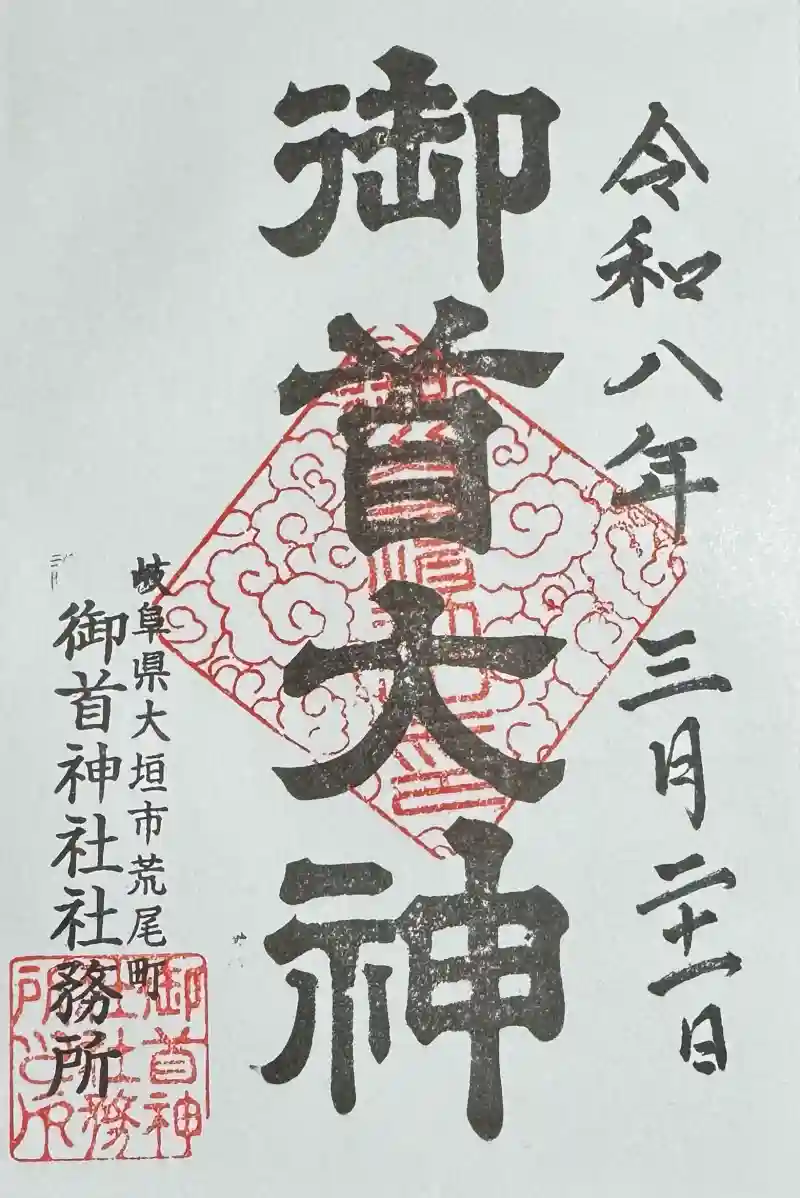 令和八年三月二十一日
御首大神
岐阜県大垣市荒尾町
御首神社社務所
御首神
社社務
所之印